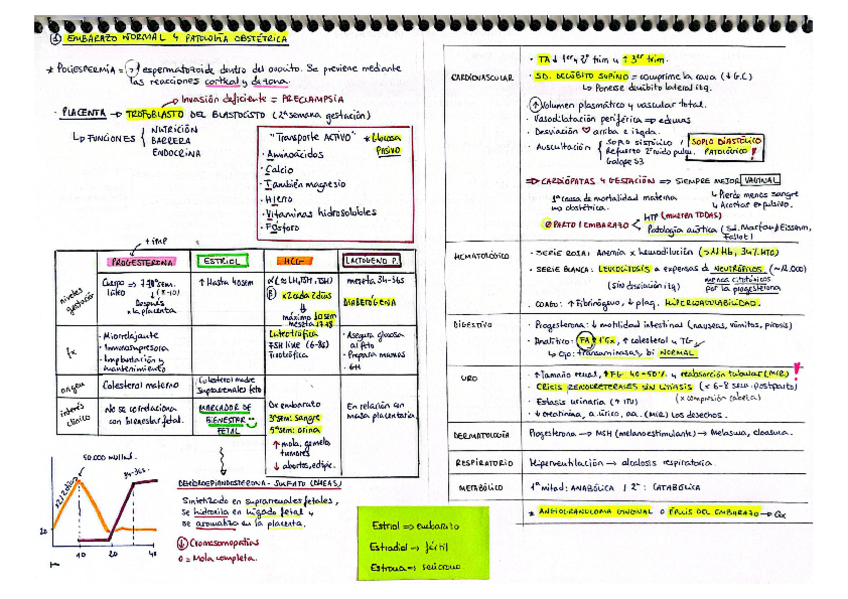 ① EMBARAZO NORMAL Y PATOLOGÍA OBSTÉTRICA
* POLIESPERMIA = >1 espermatozoide dentro del ovocito. Se previene mediante
las reacciones cortical y de zona.
Invasión deficiente = PRECLAMPSIA
· PLACENTA → TROFOBLASTO DEL BLASTOCISTO (2ª semana gestación)
↳ FUNCIONES { NUTRICIÓN
BARRERA
ENDOCRINA
"Transporte ACTIVO" * Glucosa
PASIVO
· Aminoácidos
· Calcio
· También magnesio
· Hierro
· Vitaminas hidrosolubles
· Fósforo
+ imp
PROGESTERONA
ESTRIOL
HCG
LACTÓGENO P.
niveles
gestación
Cuerpo → 7-8ª sem.
lúteo (8-10)
Después
x la placenta
↑ Hasta 40sem
x2 cada 2 días
máximo 10 sem
meseta 34-36s
DIABETÓGENA
fx
· Miorrelajante
· Inmunosupresora
· Implantación y
mantenimiento
Luteotrófica
Tirotrófica
· Asegura glucosa
al feto
· Prepara mamas
· GH
origen
Colesterol materno
Colesterol madre
Suprarrenales feto
interés
clínico
No se correlaciona
con bienestar fetal.
MARCADOR DE
BIENESTAR
FETAL
Dx embarazo
3ªsem: sangre
5ªsem: orina
↑ mola, gemelos
tumores
↓ abortos, ectópic.
En relación con
masa placentaria.
50.000 mUI/ml.
x2/2días
34-36s.
20
10
20
40
DEHIDROEPIANDROSTERONA - SULFATO (DHEAS)
Sintetizado en suprarrenales fetales,
se hidroxila en hígado fetal y
se aromatiza en la placenta.
↓ Cromosomopatías
0 = Mola completa.
Estriol ⇒ embarazo
Estradiol → fértil
Estrona → senectud
CARDIOVASCULAR
· TA ↓ 1er y 2º trim y ↑ 3er trim.
· SD. DECÚBITO SUPINO = comprime la cava (↓ G.C)
↳ Ponerse decúbito lateral izq.
· ↑ Volumen plasmático y vascular total.
· Vasodilatación periférica ⇒ edemas
· Desviación ♥ arriba e izqda.
· Auscultación { Soplo sistólico /
Refuerzo 2º ruido pulm.
Galope S3
SOPLO DIASTÓLICO
PATOLÓGICO !
⇒ CARDIÓPATAS Y GESTACIÓN ⇒ SIEMPRE MEJOR VAGINAL
1ª causa de mortalidad materna
no obstétrica.
↳ Pierde menos sangre
↳ Acortar expulsivo.
Ø PARTO/EMBARAZO < HTP (mueren TODAS)
Patología aórtica (Sd. Marfan/Eissenm,
Fallot)
HEMATOLÓGICO
· SERIE ROJA: Anemia x hemodilución (>11 Hb, 34% HTO)
· SERIE BLANCA: LEUCOCITOSIS a expensas de NEUTRÓFILOS (~12.000)
(sin desviación izq)
menos citotóxicos
por la progesterona
· COAGU: ↑ Fibrinógeno, ↓ plaq. HIPERCOAGULABILIDAD.
DIGESTIVO
· Progesterona: ↓ motilidad intestinal (nauseas, vómitos, pirosis)
↑ colesterol y TG
↳ Ojo: transaminasas, bi NORMAL
URO
· ↑ Tamaño renal, ↑ FG 40-50% y reabsorción tubular (MIR) !
· CRISIS RENOURETERALES SIN LITIASIS (x 6-8 sem. postparto)
· Estasis urinaria (↑ ITU)
· ↓ creatinina, a. úrico, aa. (MIR) los desechos.
DERMATOLOGÍA
Progesterona → MSH (melanoestimulante) → Melasma, cloasma.
RESPIRATORIO
Hiperventilación → alcalosis respiratoria.
METABÓLICO
1ª mitad: ANABÓLICA / 2ª: CATABÓLICA
* ANGIOGRANULOMA GINGIVAL O ÉPULIS DEL EMBARAZO → Qx